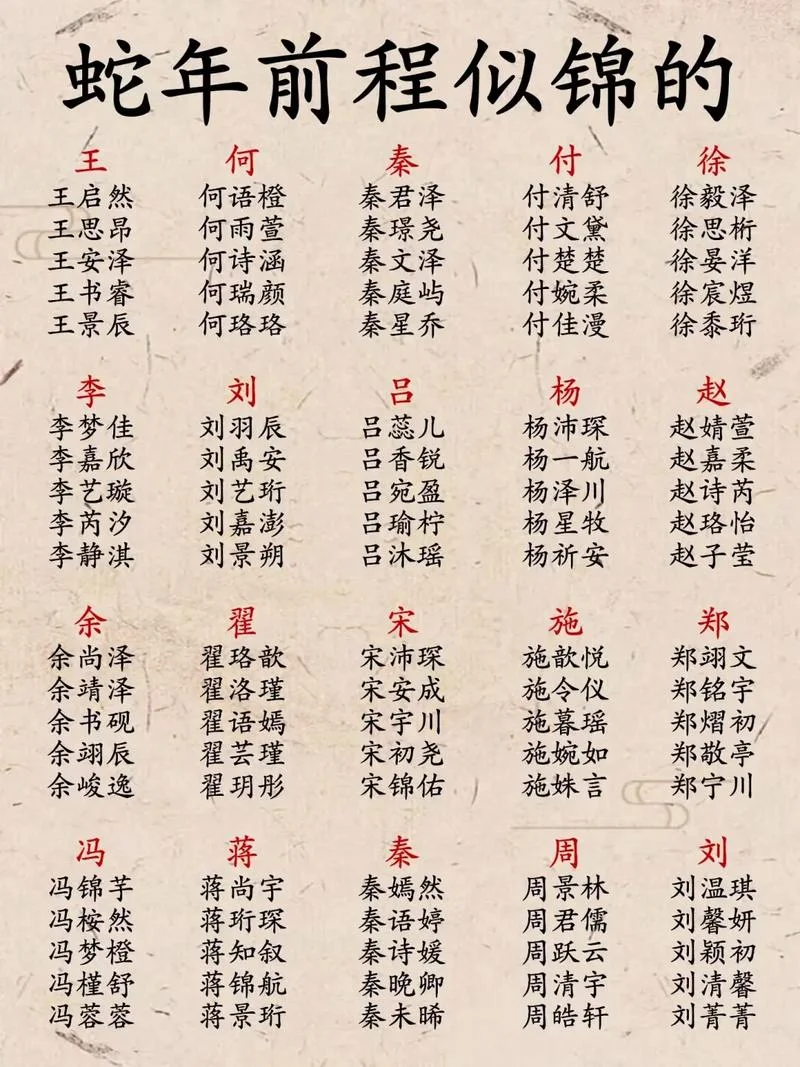 蛇年前程似锦的
王 何 秦 付 徐
王启然 何语橙 秦君泽 付清舒 徐毅泽
王思昂 何雨萱 秦璟尧 付文黛 徐思桁
王安泽 何诗涵 秦文泽 付楚楚 徐晏洋
王书睿 何瑞颜 秦庭屿 付婉柔 徐宸煜
王景辰 何珞珞 秦星乔 付佳漫 徐黍珩
李 刘 吕 杨 赵
李梦佳 刘羽辰 吕蕊儿 杨沛琛 赵婧萱
李嘉欣 刘禹安 吕香锐 杨一航 赵嘉柔
李艺璇 刘艺珩 吕宛盈 杨泽川 赵诗芮
李芮汐 刘嘉澎 吕瑜柠 杨星牧 赵珞怡
李静淇 刘景朔 吕沐瑶 杨祈安 赵子莹
余 翟 宋 施 郑
余尚泽 翟珞歆 宋沛琛 施歆悦 郑翊文
余靖泽 翟洛瑾 宋安成 施令仪 郑铭宇
余书砚 翟语嫣 宋宇川 施暮瑶 郑熠初
余翊辰 翟芸瑾 宋初尧 施婉如 郑敬亭
余峻逸 翟玥彤 宋锦佑 施姝言 郑宁川
冯 蒋 秦 周 刘
冯锦芋 蒋尚宇 秦嫣然 周景林 刘温琪
冯桉然 蒋珩琛 秦语婷 周君儒 刘馨妍
冯梦橙 蒋知叙 秦诗媛 周跃云 刘颖初
冯槿舒 蒋锦航 秦晚卿 周清宇 刘清馨
冯蓉蓉 蒋景珩 秦未晞 周皓轩 刘菁菁